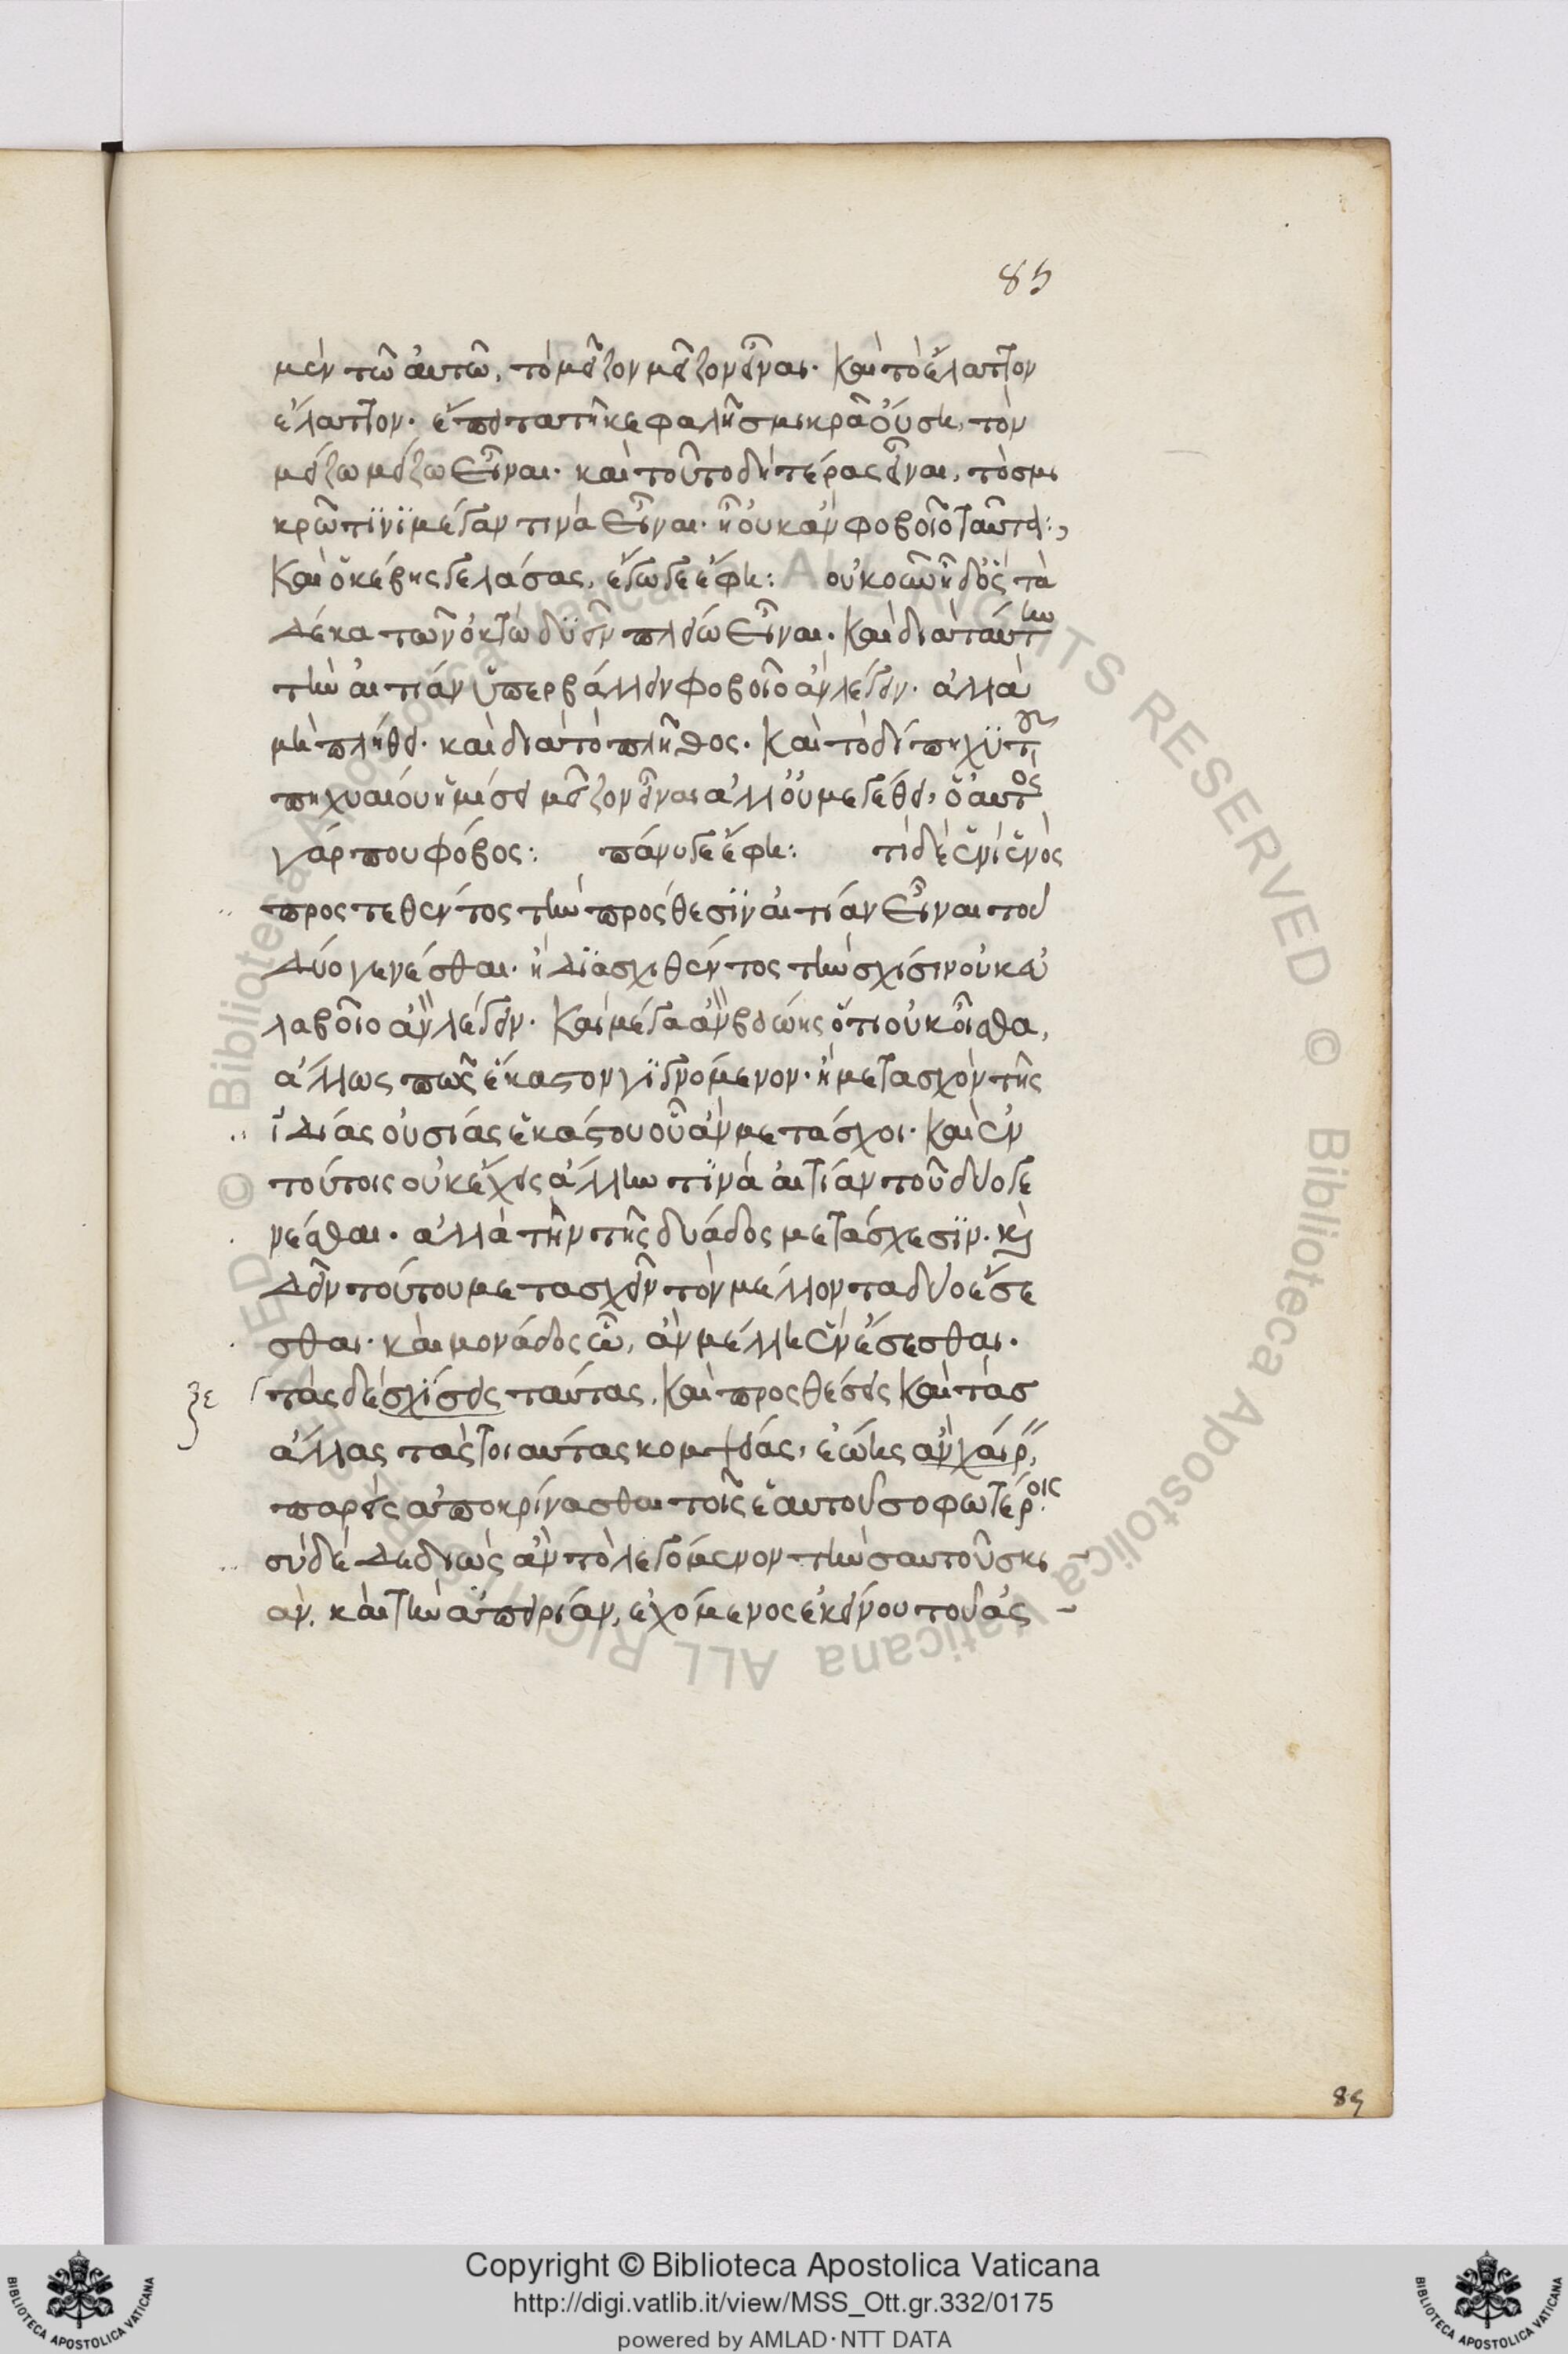 85
μὲν τῶ αὐτῶ, τὸ μεῖζον μεῖζον εἶναι. καὶ τὸ ἔλαττον
ἔλαττον. ἔπειτα τῆ κεφαλῆ σμικρᾶ οὔση, τὸν
μείζω μείζω εἶναι. καὶ τοῦτο δὴ τέρας εἶναι, τὸ σμι
κρῶ τινὶ μέγαν τινὰ εἶναι. ἢ οὐκ ἂν φοβοῖο ταῦτα:,
καὶ ὁ κέβης γελάσας, ἔγωγε ἔφη: οὐκοῦν ἦ δ' ὃς τὰ
δέκα τῶν ὀκτὼ δυεῖν πλείω εἶναι. καὶ διὰ ταύτην
τὴν αἰτίαν ὑπερβάλλειν φοβοῖο ἂν λέγειν. ἀλλὰ
μὴ πλήθει. καὶ διὰ τὸ πλῆθος. καὶ τὸ δίπηχυ τοῦ
πηχυαίου ἡμίσει μεῖζον εἶναι ἀλλ' οὐ μεγέθει, ὁ αὐτὸς
γάρ που φόβος: πάνυ γε ἔφη: τί δὲ ἑνὶ ἑνὸς
προστεθέντος τὴν πρόσθεσιν αἰτίαν εἶναι τοῦ
δύο γενέσθαι. ἢ διασχισθέντος τὴν σχίσιν οὐκ εὐ
λαβοῖο ἂν λέγειν. καὶ μέγα ἂν βοώης ὅτι οὐκ οἶσθα,
ἄλλως πως ἕκαστον γιγνόμενον. ἢ μετασχὸν τῆς
ἰδίας οὐσίας ἑκάστου οὗ ἂν μετάσχοι. καὶ ἐν
τούτοις οὐκ ἔχεις ἄλλην τινὰ αἰτίαν τοῦ δύο γε
νέσθαι. ἀλλὰ τὴν τῆς δυάδος μετάσχεσιν. καὶ
δεῖν τούτου μετασχεῖν τὸν μέλλοντα δύο ἔσε
σθαι. καὶ μονάδος ὧ, ἂν μέλλη ἓν ἔσεσθαι.
τὰς δὲ σχίσεις ταύτας, καὶ προσθέσεις καὶ τὰσ
ἄλλας τὰς τοιαύτας κομψείας, ἐώης ἂν χαίρ,
παρεὶς ἀποκρίνασθαι τοῖς ἑαυτοῦ σοφωτέροις.
σὺ δὲ δεδιὼς ἂν τὸ λεγόμενον τὴν σαυτοῦ σκι
ὰν, καὶ τὴν ἀπειρίαν, ἐχόμενος ἐκείνου τοῦ ἀς
85
Copyright © Biblioteca Apostolica Vaticana
http://digi.vatlib.it/view/MSS_Ott.gr.332/0175
powered by AMLAD·NTT DATA